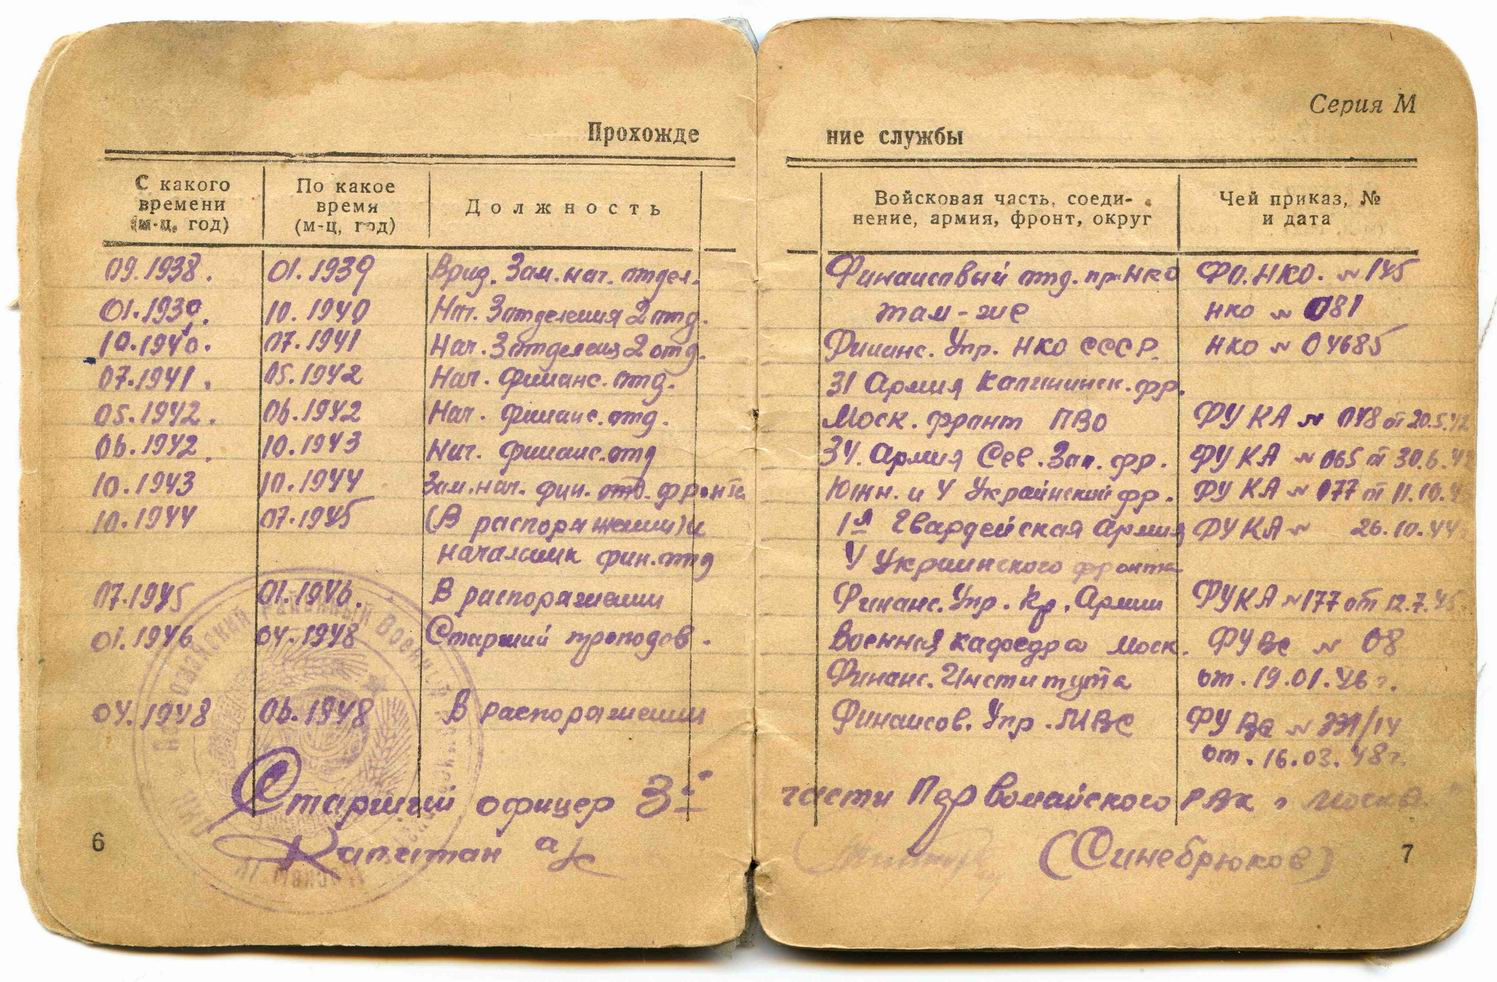 Серия М
Прохожде ние службы
С какого времени (м-ц, год) По какое время (м-ц, год) Должность Войсковая часть, соеди- нение, армия, фронт, округ Чей приказ, № и дата
09.1938. 01.1939 Врид. Зам. нач. отдел. Финансовый отд. при НКО ФО. НКО. № 145
01.1939. 10.1940 Нач. 3 отделения 2 отд. там-же НКО № 081
10.1940. 07.1941 Нач. 3 отделения 2 отд. Финанс. Упр. НКО СССР. НКО № 04685
07.1941. 05.1942 Нач. финанс. отд. 31 Армия Калининск. фр.
05.1942. 06.1942 Нач. финанс. отд. Моск. фронт ПВО ФУ КА № 048 от 20.5.42
06.1942. 10.1943 Нач. финанс. отд 34. Армия Сев. Зап. фр. ФУ КА № 065 от 30.6.42
10.1943 10.1944 Зам. нач. фин. отд. фронта Южн. и 4 Украинский фр. ФУ КА № 077 от 11.10.4
10.1944 07.1945 (В распоряжении) и 1я Гвардейская Армия ФУ КА № 26.10.44
начальник фин. отд 4 Украинского фронта
07.1945 01.1946. В распоряжении Финанс. Упр. Кр. Армии ФУКА №177 от 12.7.45
01.1946 04.1948 Старший преподов. Военная кафедра Моск. ФУ ВС № 08
Финанс. Института от. 19.01.46 г.
04.1948 06.1948 В распоряжении Финансов. Упр. МВС ФУ ВС №
от. 16.03.48г.
Старший офицер 3й части Первомайского РВК г. Москва
Капитан а/с (Синебрюков)
6 7